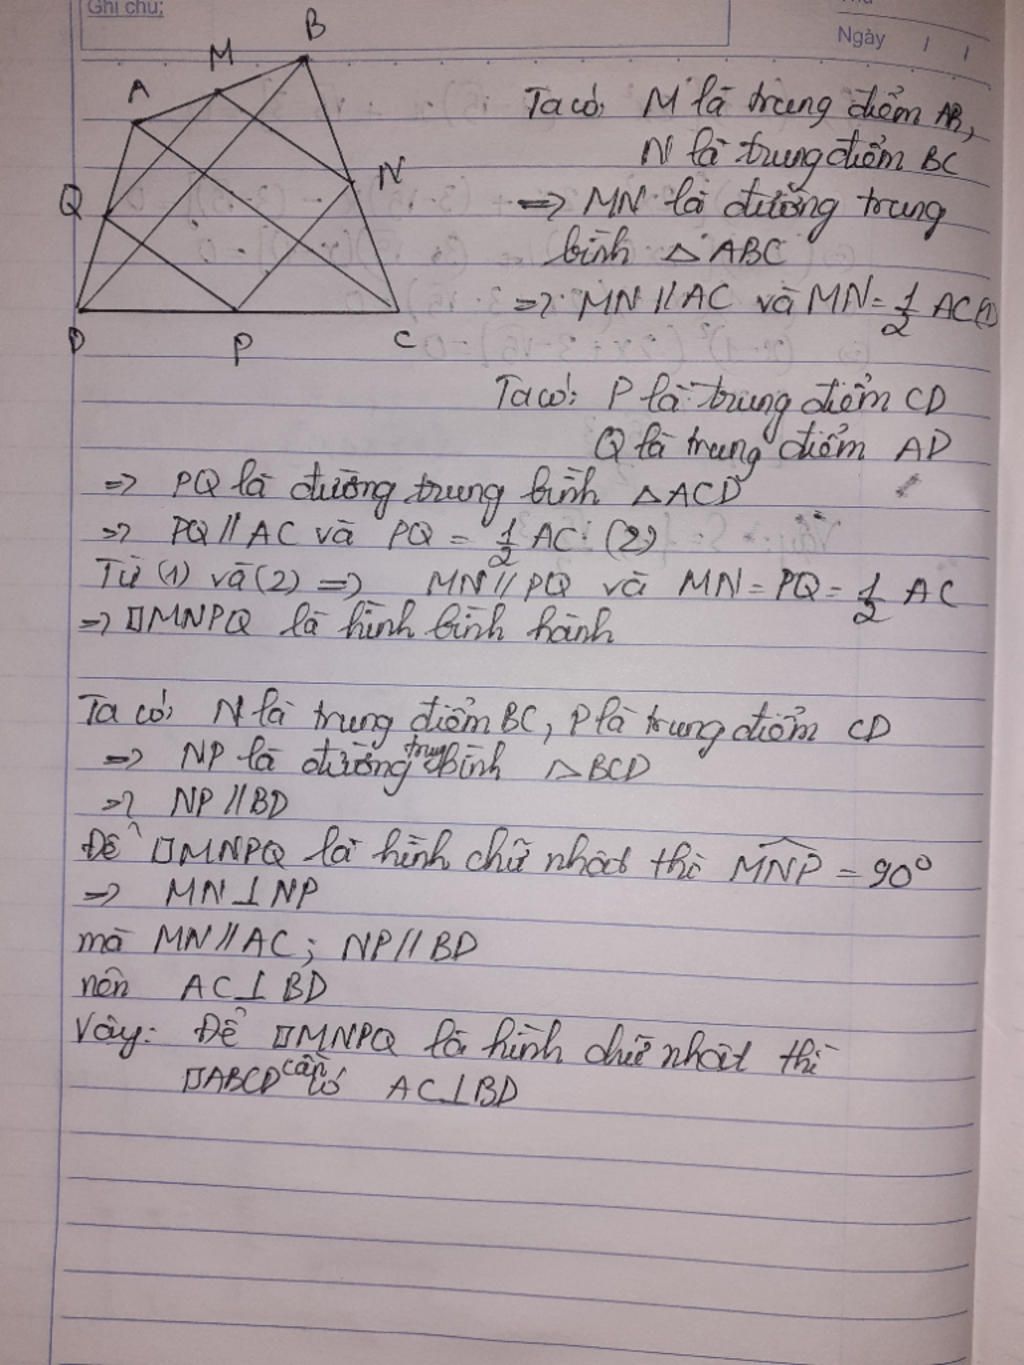 Ghi chú:
Ngày / /
B
M
A
N
Q
D
P
C
Ta có: M là trung điểm AB,
N là trung điểm BC
=> MN là đường trung
bình △ABC
=> MN // AC và MN = 1/2 AC (1)
Ta có: P là trung điểm CD
Q là trung điểm AD
=> PQ là đường trung bình △ACD
=> PQ // AC và PQ = 1/2 AC (2)
Từ (1) và (2) => MN // PQ và MN = PQ = 1/2 AC
=> □MNPQ là hình bình hành
Ta có: N là trung điểm BC, P là trung điểm CD
=> NP là đường trung bình △BCD
=> NP // BD
Để □MNPQ là hình chữ nhật thì MNP = 90°
=> MN ⊥ NP
mà MN // AC ; NP // BD
nên AC ⊥ BD
Vậy: Để □MNPQ là hình chữ nhật thì
□ABCD cần có AC ⊥ BD